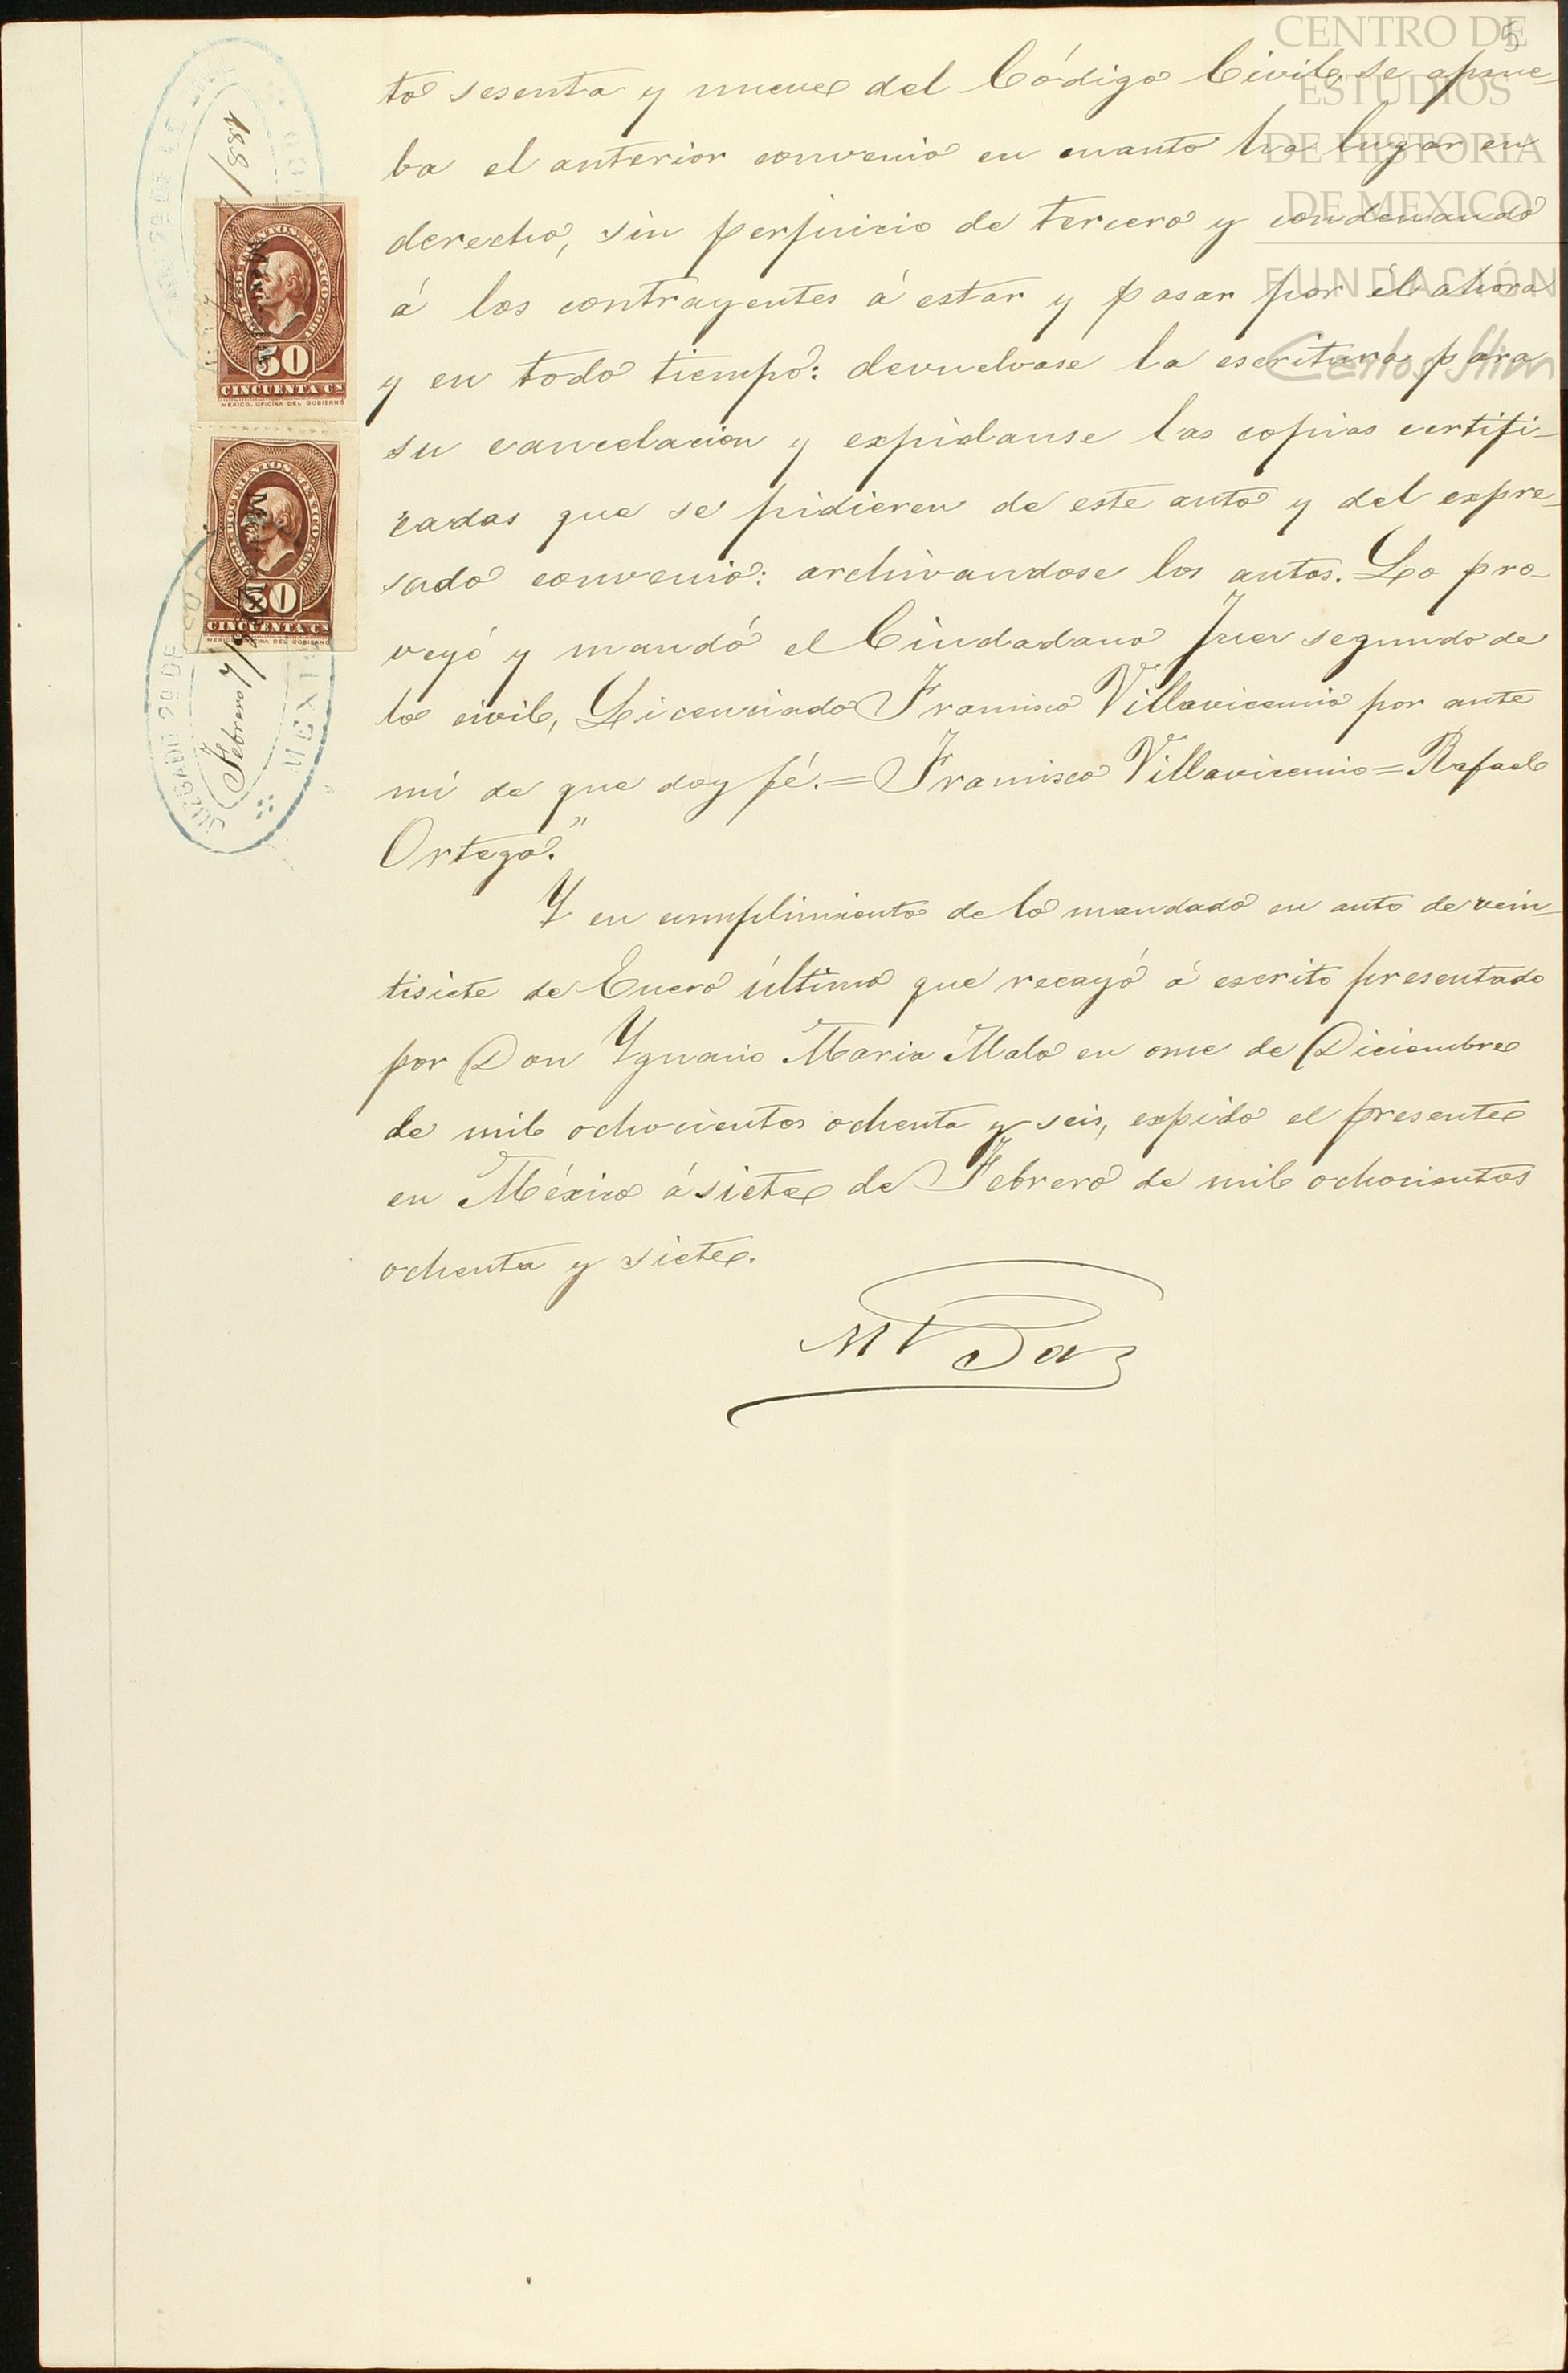 CENTRO DE
ESTUDIOS
DE HISTORIA
DE MEXICO
FUNDACIÓN
Carlos Slim
5
to sesenta y nueve del Código Civil, se aprue-
ba el anterior convenio en cuanto ha lugar en
derecho, sin perjuicio de tercero y condenando
á los contrayentes á estar y pasar por él ahora
y en todo tiempo: devuelvase la escritura para
su cancelacion y expidanse las copias certifi-
cadas que se pidieren de este auto y del expre-
sado convenio: archivandose los autos. Lo pro-
veyó y mandó el Ciudadano Juez segundo de
lo civil, Licenciado Francisco Villavicencio por ante
mi de que doy fé.=Francisco Villavicencio=Rafael
Ortega."
Y en cumplimiento de lo mandado en auto de vein-
tisiete de Enero último que recayó á escrito presentado
por Don Ygnacio Maria Malo en once de Diciembre
de mil ochocientos ochenta y seis, expido el presente
en México á siete de Febrero de mil ochocientos
ochenta y siete.
DOCUMENTOS. MEXICO.
50
CINCUENTA CS
MEXICO. OFICINA DEL GOBIERNO
DOCUMENTOS. MEXICO.
50
CINCUENTA CS
Febrero 7/
JUZGADO 2º DE
MEXI
2